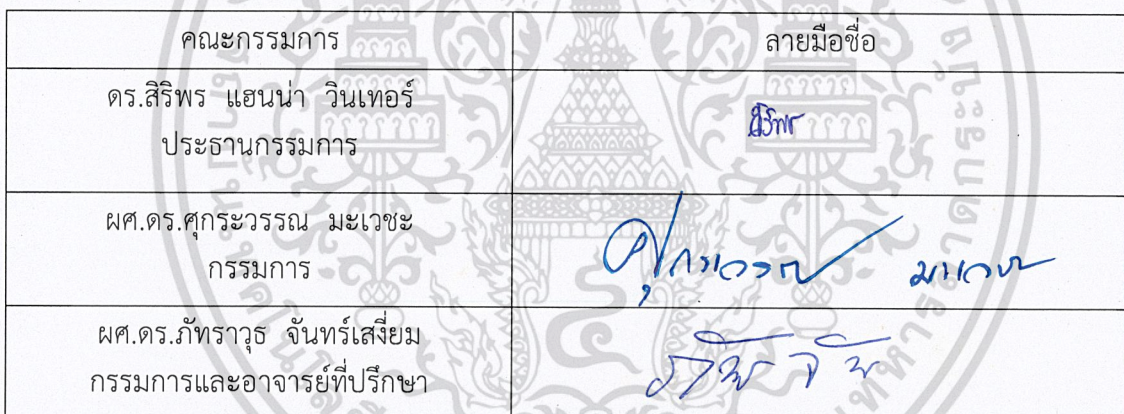 คณะกรรมการ ลายมือชื่อ
ดร.สิริพร แฮนน่า วินเทอร์
ประธานกรรมการ
สิริพร
ผศ.ดร.ศุกระวรรณ มะเวชะ
กรรมการ
ศุกระวรรณ มะเวชะ
ผศ.ดร.ภัทราวุธ จันทร์เสงี่ยม
กรรมการและอาจารย์ที่ปรึกษา